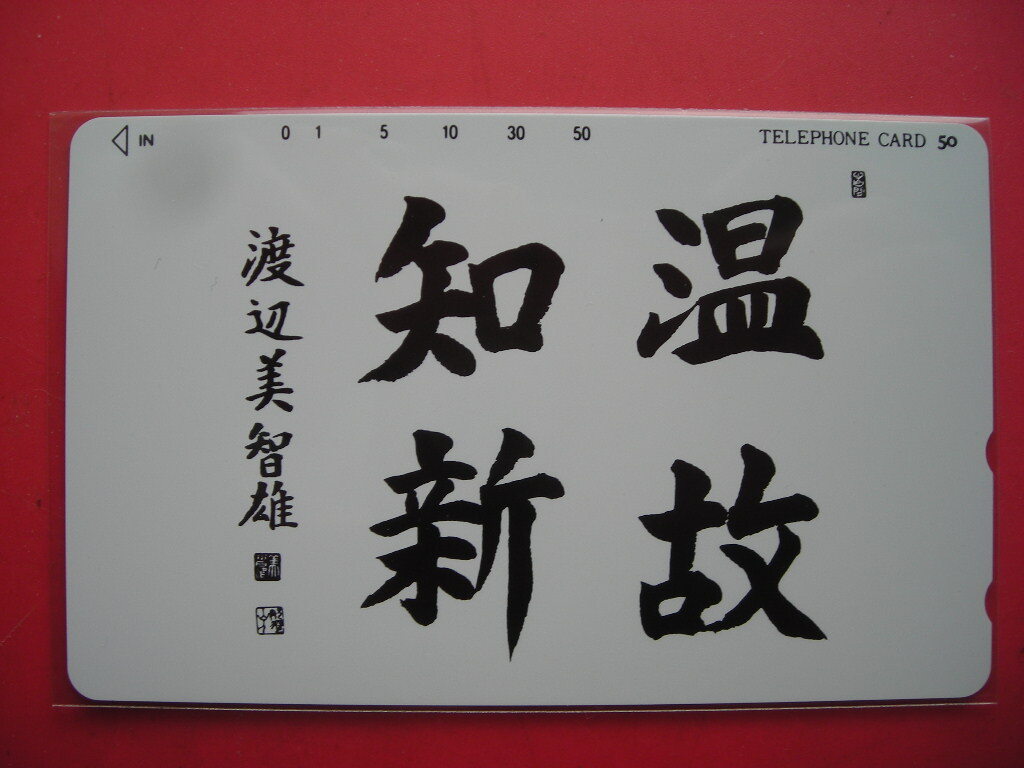 IN 0 1 5 10 30 50 TELEPHONE CARD 50
温故
知新
渡辺美智雄